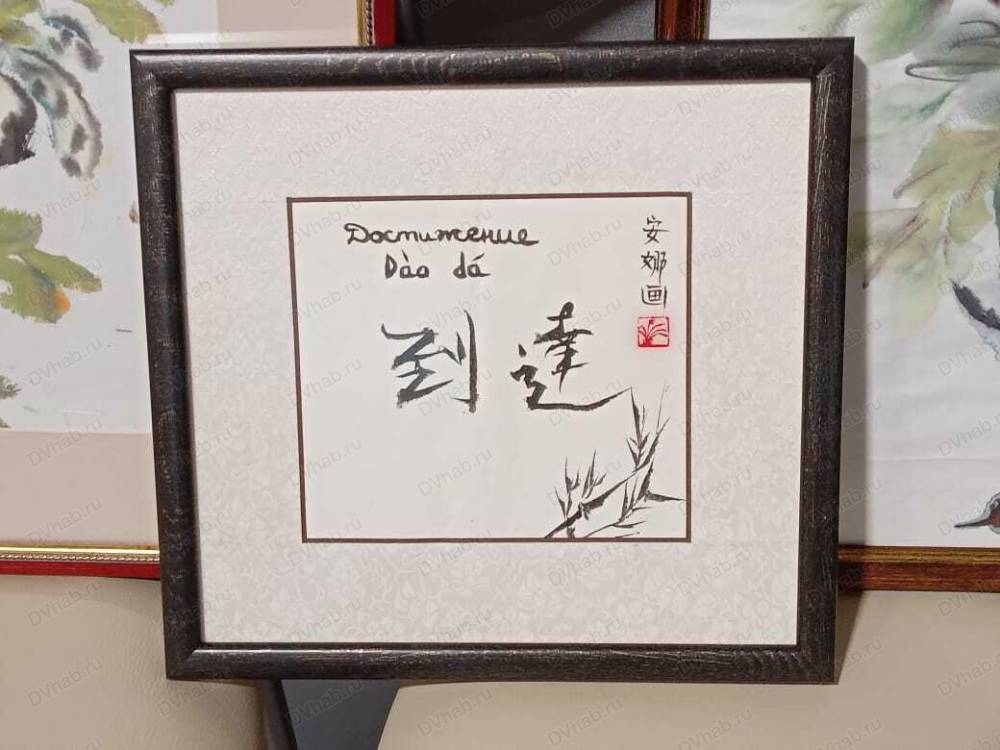 Достижение
Dào dá
到 達
安娜画
DVhab.ru